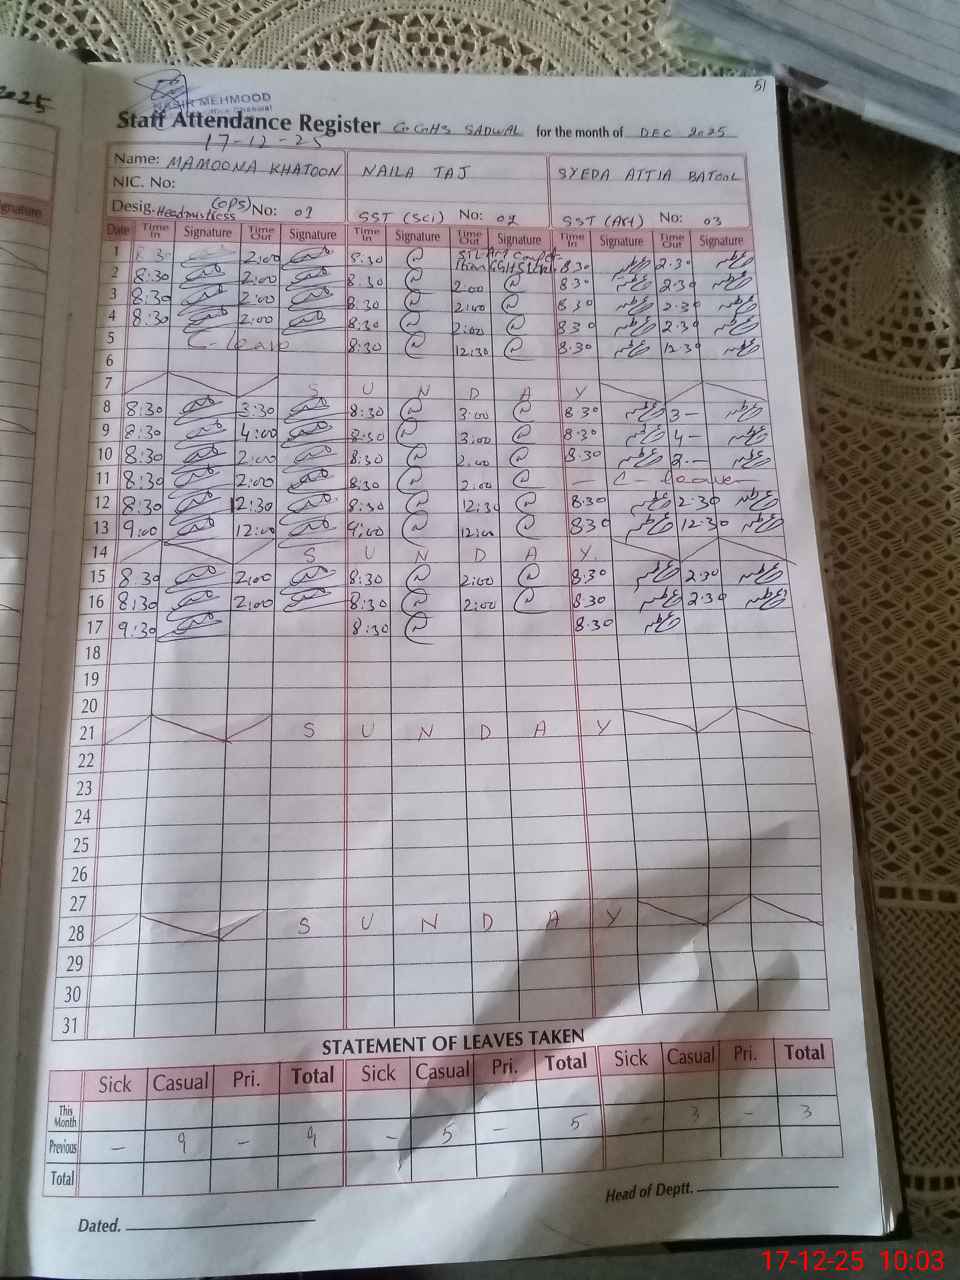 2025
51
NASIR MEHMOOD
Staff Attendance Register G.GHS SADWAL for the month of DEC 2025
17-12-25
Name: MAMOONA KHATOON NAILA TAJ SYEDA ATTIA BATOOL
NIC. No:
Desig. Headmistress (OPS) No: 01 SST (SCI) No: 02 SST (Art) No: 03
Date Time In Signature Time Out Signature Time In Signature Time Out Signature Time In Signature Time Out Signature
1 8:30 2:00 8:30 8:30 2:30
2 8:30 2:00 8:30 2:00 8:30 2:30
3 8:30 2:00 8:30 2:00 8:30 2:30
4 8:30 2:00 8:30 2:00 8:30 2:30
5 C-leave 8:30 12:30 8:30 12:30
6
7 S U N D A Y
8 8:30 3:30 8:30 3:00 8:30 3-
9 8:30 4:00 8:30 3:00 8:30 4-
10 8:30 2:00 8:30 2:00 8:30 2-
11 8:30 2:00 8:30 2:00 - C-leave
12 8:30 12:30 8:30 12:30 8:30 2:30
13 9:00 12:00 9:00 12:00 8:30 12:30
14 S U N D A Y
15 8:30 2:00 8:30 2:00 8:30 2:30
16 8:30 2:00 8:30 2:00 8:30 2:30
17 9:30 8:30 8:30
18
19
20
21 S U N D A Y
22
23
24
25
26
27
28 S U N D A Y
29
30
31
STATEMENT OF LEAVES TAKEN
Sick Casual Pri. Total Sick Casual Pri. Total Sick Casual Pri. Total
This Month
Previous - 9 - 9 - 5 - 5 - 3 - 3
Total
Dated. Head of Deptt.
17-12-25 10:03